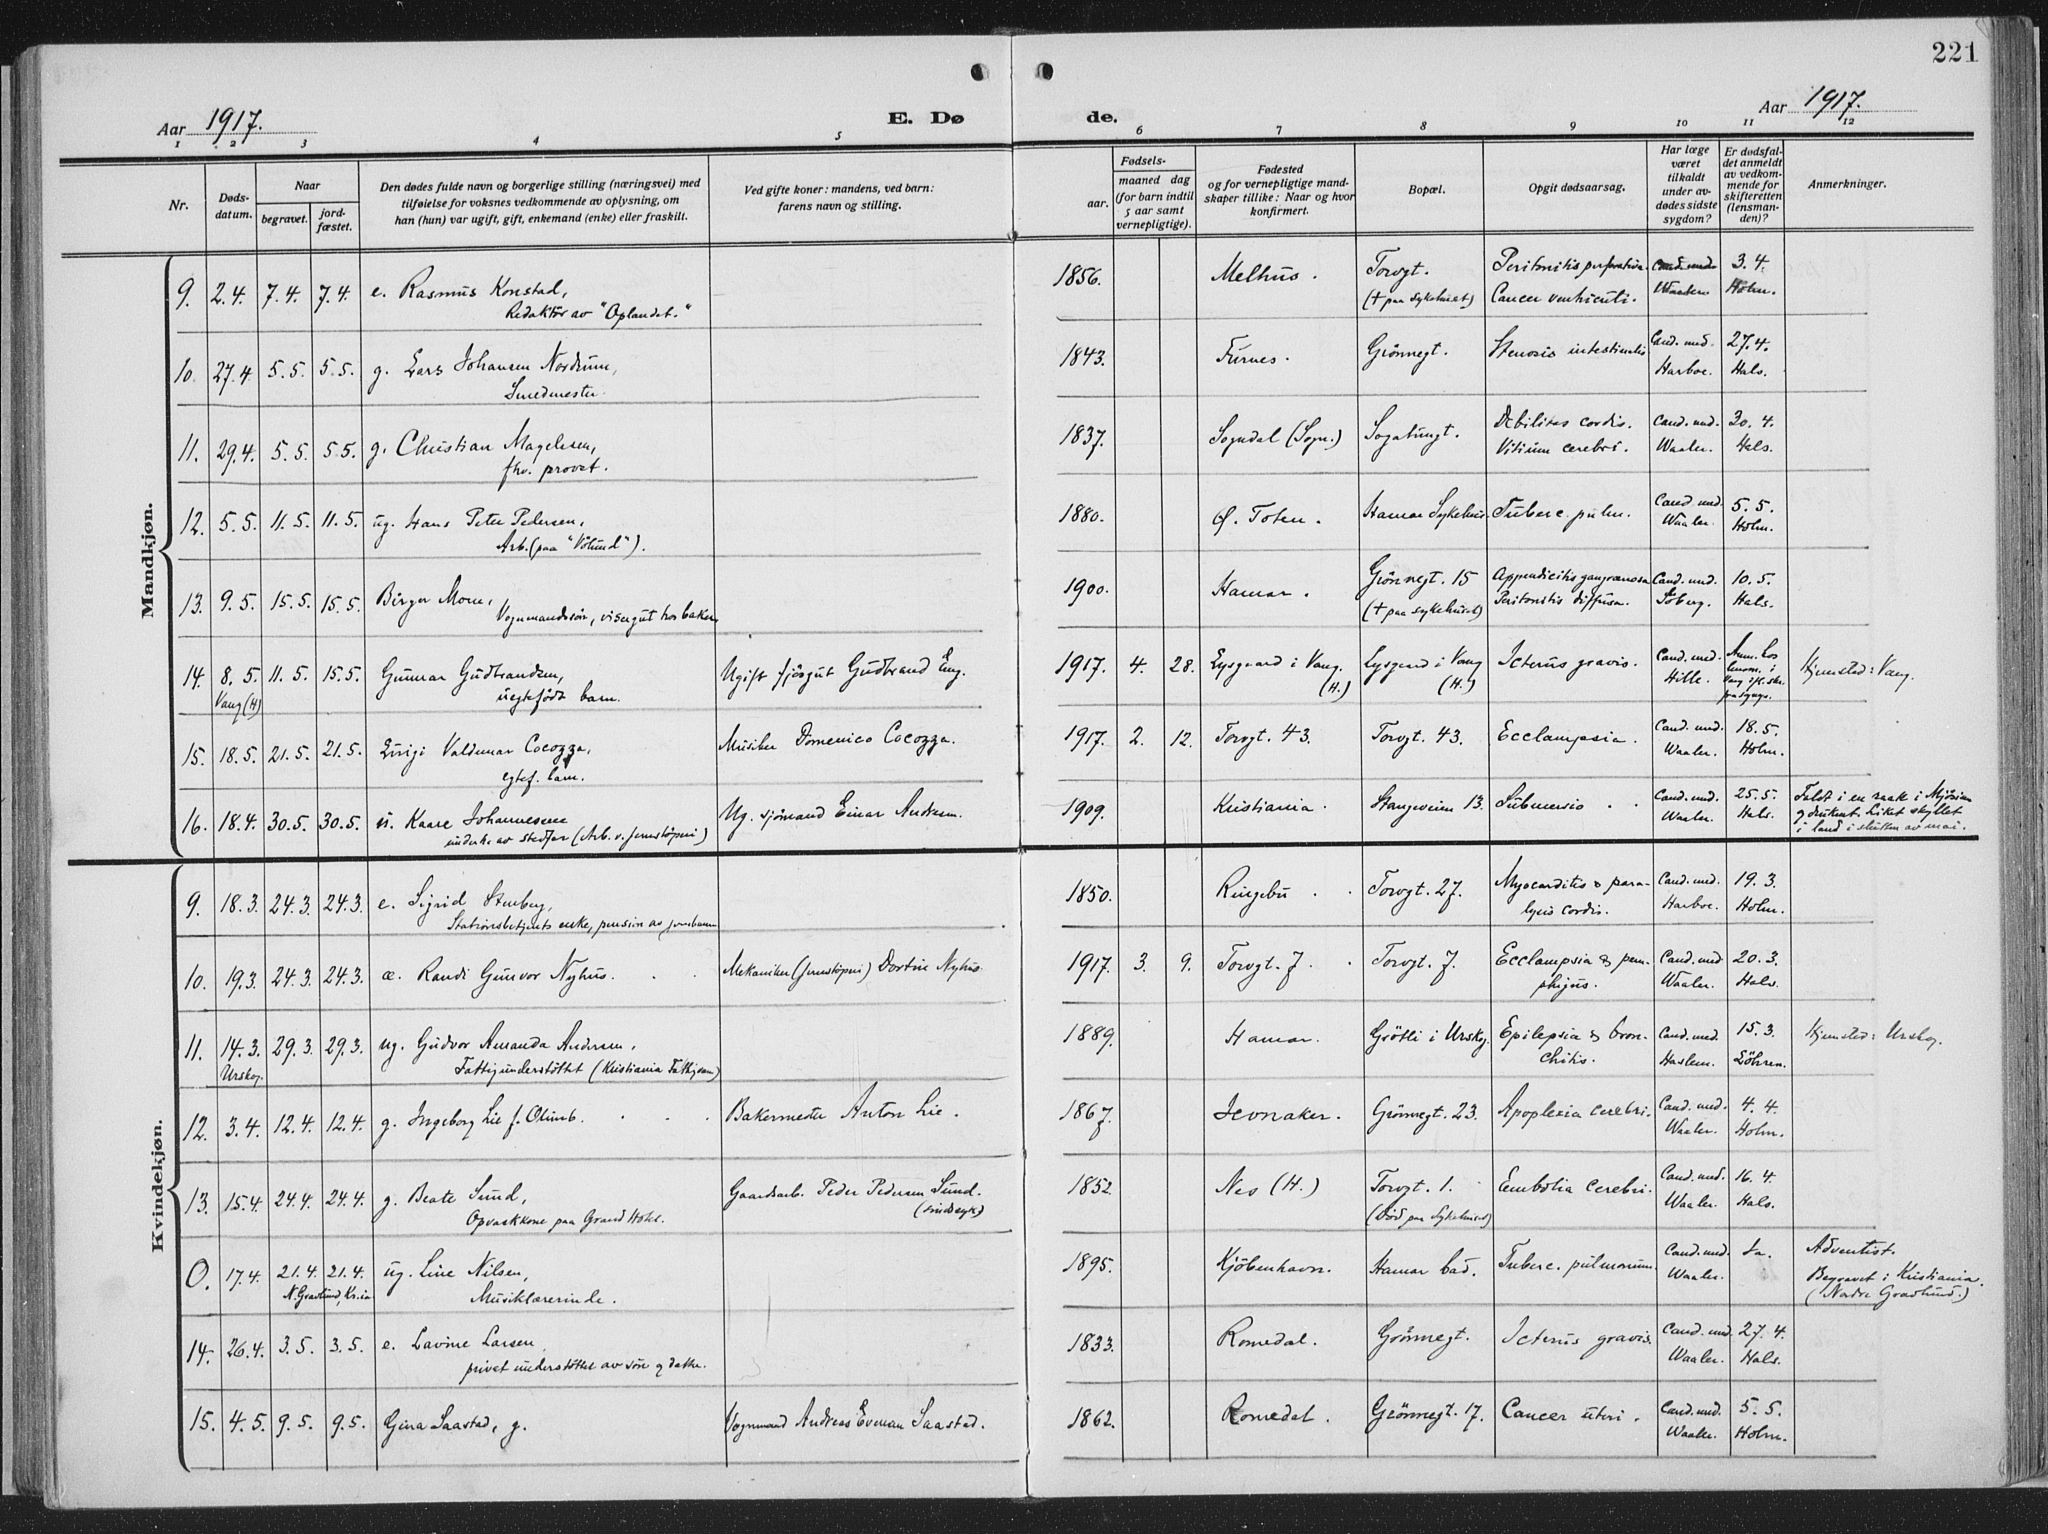 221
Aar 1917.
E. Dø
de.
Aar 1917.
1 2 3 4 5 6 7 8 9 10 11 12
Nr.
Døds-
datum.
Naar
begravet.
jord-
fæstet.
Den dødes fulde navn og borgerlige stilling (næringsvei) med
tilføielse for voksnes vedkommende av oplysning, om
han (hun) var ugift, gift, enkemand (enke) eller fraskilt.
Ved gifte koner: mandens, ved barn:
farens navn og stilling.
Fødsels-
aar.
maaned dag
(for barn indtil
5 aar samt
vernepligtige).
Fødested
og for vernepligtige mand-
skaper tillike: Naar og hvor
konfirmert.
Bopæl.
Opgit dødsaarsag.
Har læge
været
tilkaldt
under av-
dødes sidste
sygdom?
Er dødsfal-
det anmeldt
av vedkom-
mende for
skifteretten
(lensman-
den)?
Anmerkninger.
Mandkjøn.
9. 2.4. 7.4. 7.4. e. Rasmus Konstad, 1856. Melhus. Torvgt. Peritonitis perforativa. Cand. med. 3.4.
Redaktør av "Oplandet." (+ paa sykehuset) Cancer ventriculi. Waaler. Holm.
10. 27.4. 5.5. 5.5. g. Lars Johansen Nordrum, 1843. Furnes. Grönnegt. Stenosis intestinalis Cand. med. 27.4.
Smedmester. Harboe. Hals.
11. 29.4. 5.5. 5.5. g. Christian Magelssen, 1837. Sogndal (Sogn.) Debilitas cordis. Cand. med. 30.4.
fhv. provst. Vitium cerebri. Waaler. Hals.
12. 5.5. 11.5. 11.5. ug. Hans Peter Pedersen, 1880. Ø. Toten. Hamar Sykehus. Tuberc. pulm. Cand. med. 5.5.
Arb. (paa "Vølund"). Waaler. Holm.
13. 9.5. 15.5. 15.5. Birger Moen, 1900. Hamar. Grönnegt. 15 Appendicitis gangrænosa Cand. med. 10.5.
Vognmandssøn, visergut hos baker. (+ paa sykehuset) Peritonitis diffusa. Hals.
14. 8.5. 11.5. 15.5. Gunnar Gudbrandsen, Ugift fjösgut Gudbrand Eng. 1917. 4. 28. Lysgaard i Vang. Lysgaard i Vang Icterus gravis. Cand. med. Hjemsted: Vang.
Vang (H) uegtefödt barn. (H.) (H.) Hille.
15. 18.5. 21.5. 21.5. Luigi Valdemar Cocozza, Musiker Domenico Cocozza. 1917. 2. 12. Torvgt. 43. Torvgt. 43. Ecclampsia. Cand. med. 18.5.
egtef. barn. Waaler. Holm.
16. 18.4. 30.5. 30.5. u. Kaare Johannessen Ug. sjömand Einar Andersen. 1909. Kristiania. Stangeveien 13. Submersio Cand. med. 25.5. Faldt i en raak i Mjösen
underh. av stedfar (Arb. v. jernstöperi) Waaler. Hals. og druknet. Liket skyllet
i land i slutten av mai.
Kvindekjøn.
9. 18.3. 24.3. 24.3. e. Sigrid Stenberg, 1850. Ringebu Torvgt. 27. Myocarditis & para- Cand. med. 19.3.
Stationsbetjents enke, pension av jernbanen lysis cordis. Harboe. Holm.
10. 19.3. 24.3. 24.3. æ. Randi Gunvor Nyhus. Mekaniker (jernstöperi) Dortin Nyhus 1917. 3. 9. Torvgt. 7. Torvgt. 7. Ecclampsia & pem- Cand. med 20.3.
phigus. Waaler. Hals.
11. 14.3. 29.3. 29.3. ug. Gudvor Amanda Andersen, 1889. Hamar. Grötli i Urskog. Epilepsia & bron- Cand. med. 15.3. Hjemsted: Urskog.
Urskog. Fattigunderstöttet (Kristiania Fattigvæsen) chitis. Haslem. Löhren.
12. 3.4. 12.4. 12.4. g. Ingeborg Lie f. Olimb. Bakermester Anton Lie. 1867. Jevnaker. Grönnegt. 23. Apoplexia cerebri. Cand. med. 4.4.
Waaler. Holm.
13. 15.4. 24.4. 24.4. g. Beate Sund, Gaardsarb. Peder Pedersen Sund. 1852. Nes (H.) Torvgt. 1. Embolia cerebri. Cand. med. 16.4.
Opvaskkone paa Grand Hotel. (sindssyk) (Död paa Sykehuset) Waaler. Hals.
0. 17.4. 21.4. 21.4. ug. Line Nilsen, 1895. Kjöbenhavn. Hamar bad. Tuberc. pulmonum. Cand. med. Ja. Adventist.
N. Gravlund, Kr.ia Musiklærerinde. Waaler. Begravet i Kristiania.
(Nordre Gravlund.)
14. 26.4. 3.5. 3.5. e. Lavine Larsen, 1833. Romedal. Grönnegt. Icterus gravis. Cand. med. 27.4.
privat understöttet av sön og datter. Waaler. Hals.
15. 4.5. 9.5. 9.5. Gina Saastad, g. Vognmand Andreas Evensen Saastad. 1862. Romedal. Grönnegt. 17. Cancer uteri. Cand. med. 5.5.
Waaler. Holm.